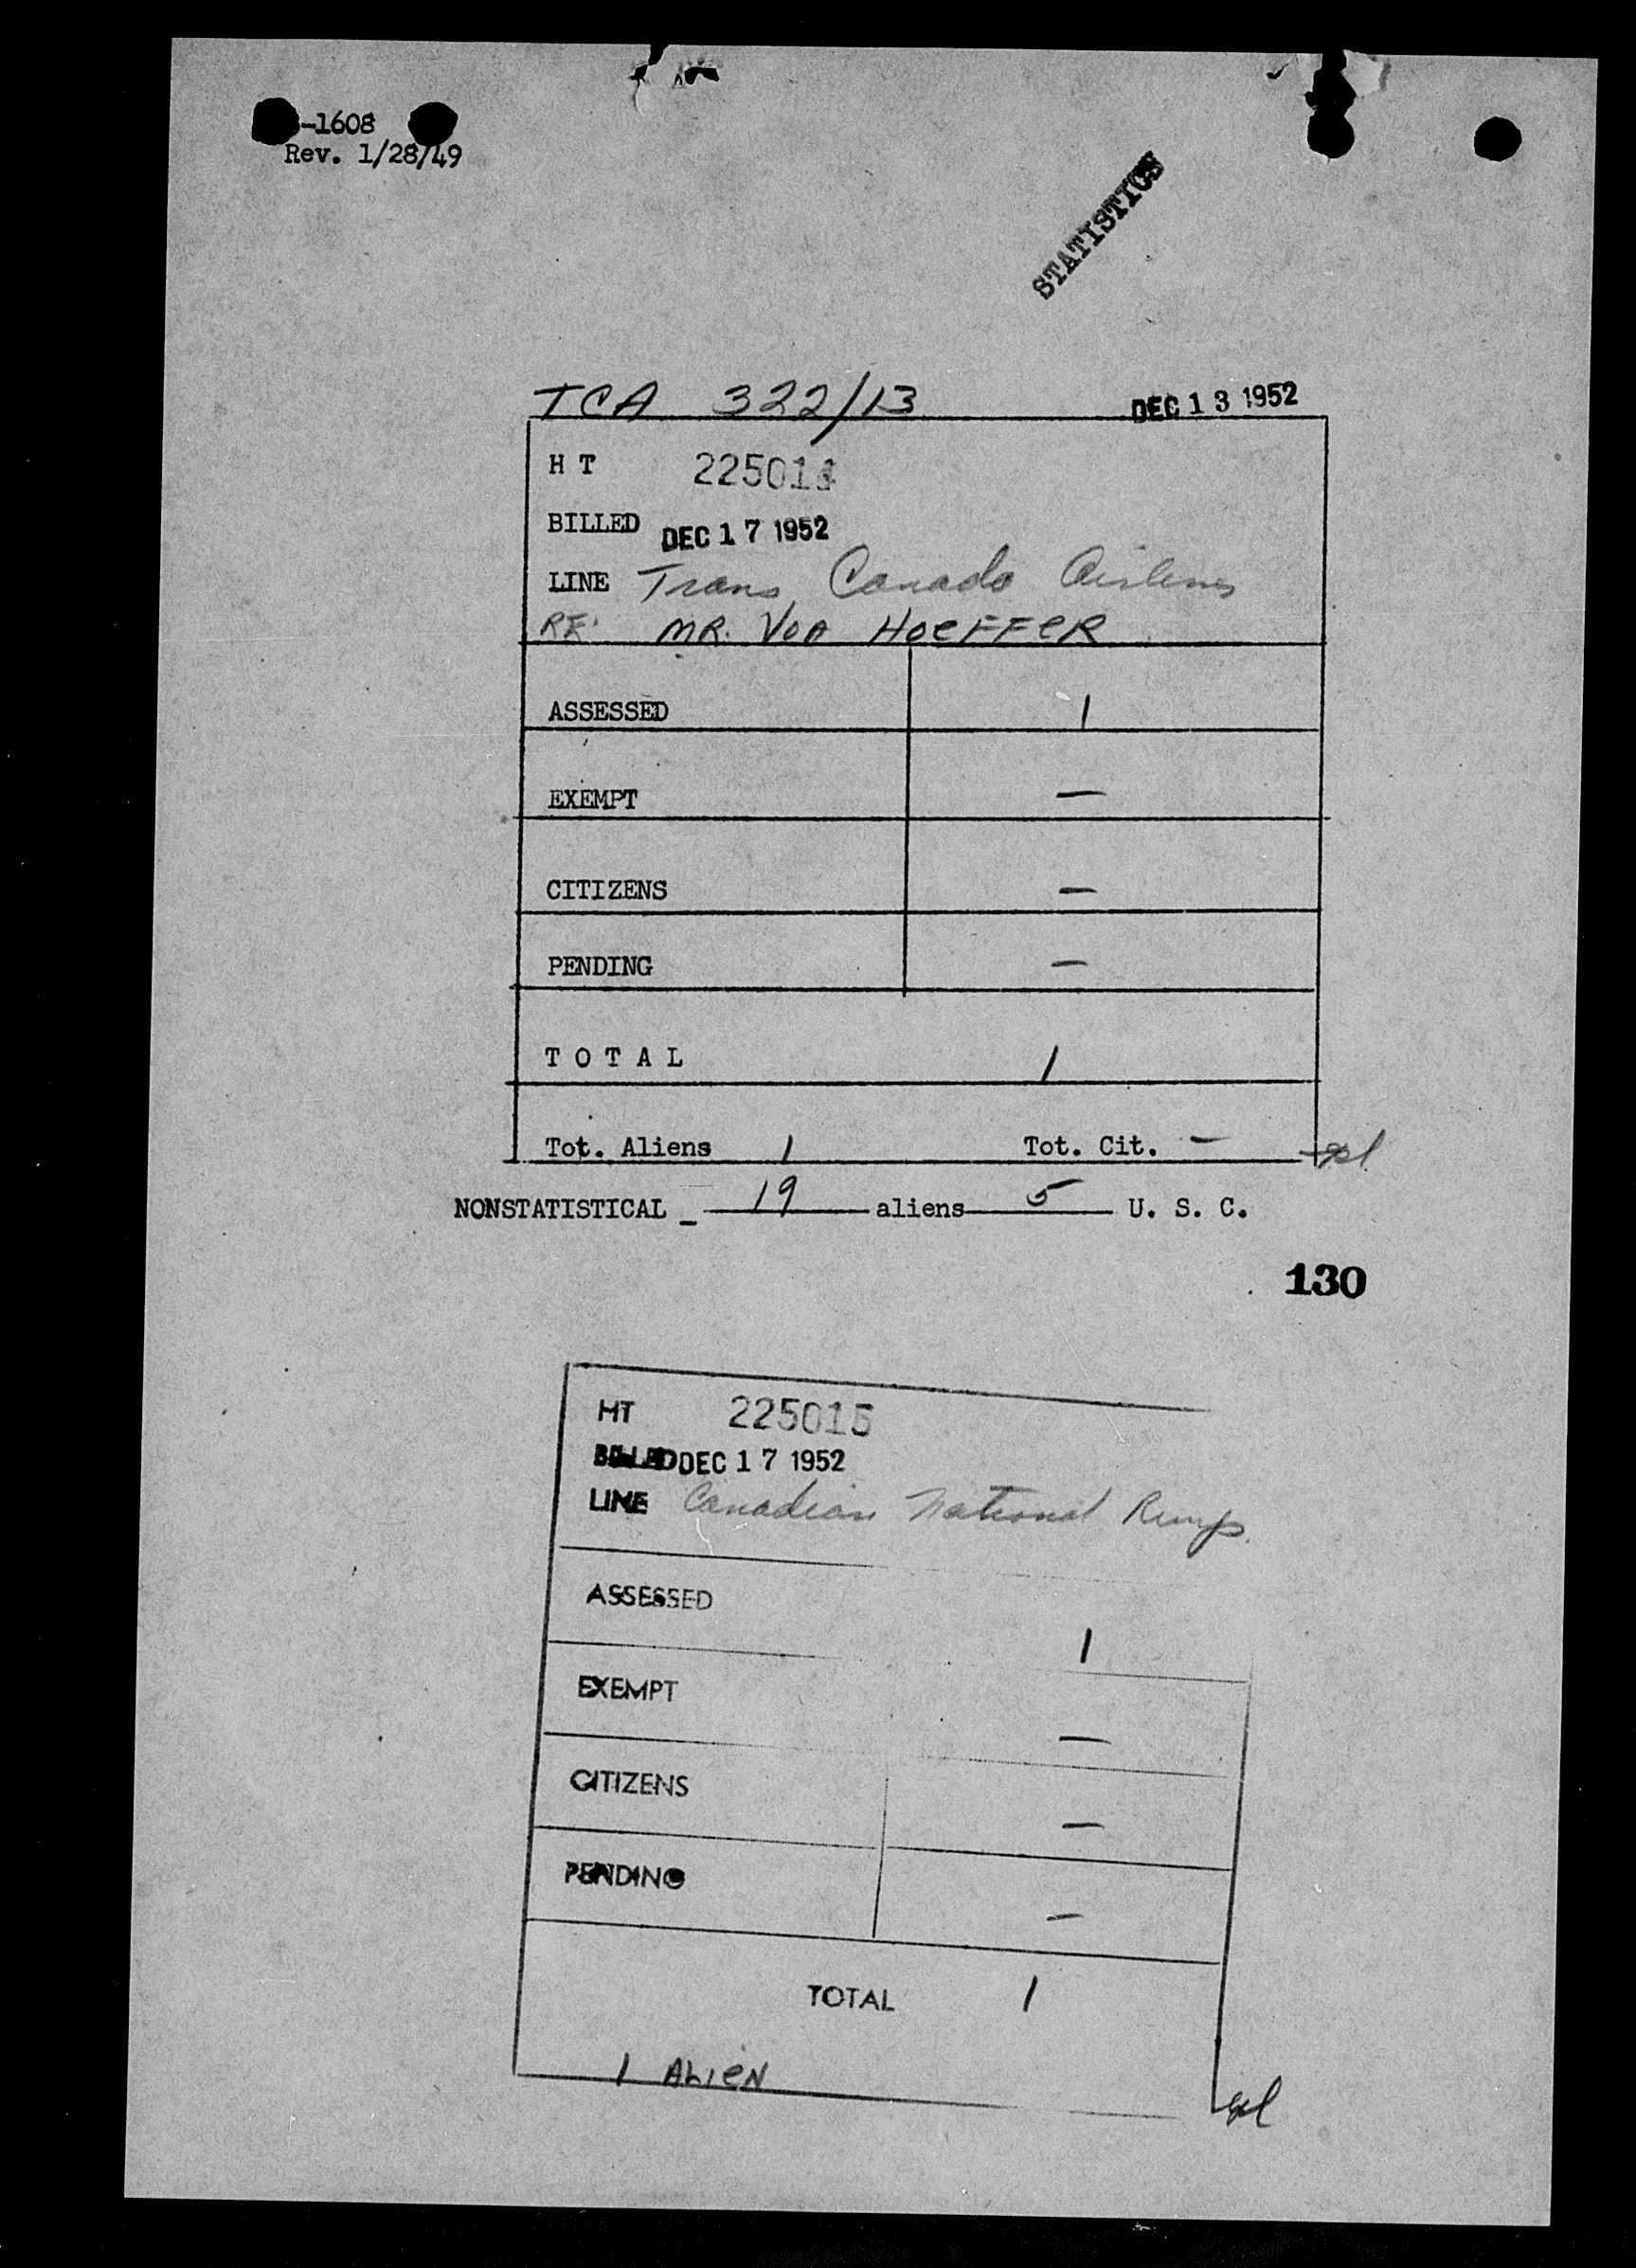 -1608
Rev. 1/28/49
STATISTICS
TCA 322/13 DEC 13 1952
H T 225011
BILLED DEC 17 1952
LINE Trans Canada Airlines
RE: MR. HOEFFER
ASSESSED 1
EXEMPT —
CITIZENS —
PENDING —
T O T A L 1
Tot. Aliens 1 Tot. Cit. —
NONSTATISTICAL - 19 aliens 5 U. S. C.
130
HT 225015
BILLED DEC 17 1952
LINE Canadian National
ASSESSED 1
EXEMPT —
CITIZENS —
PENDING —
TOTAL 1
1 ALIEN